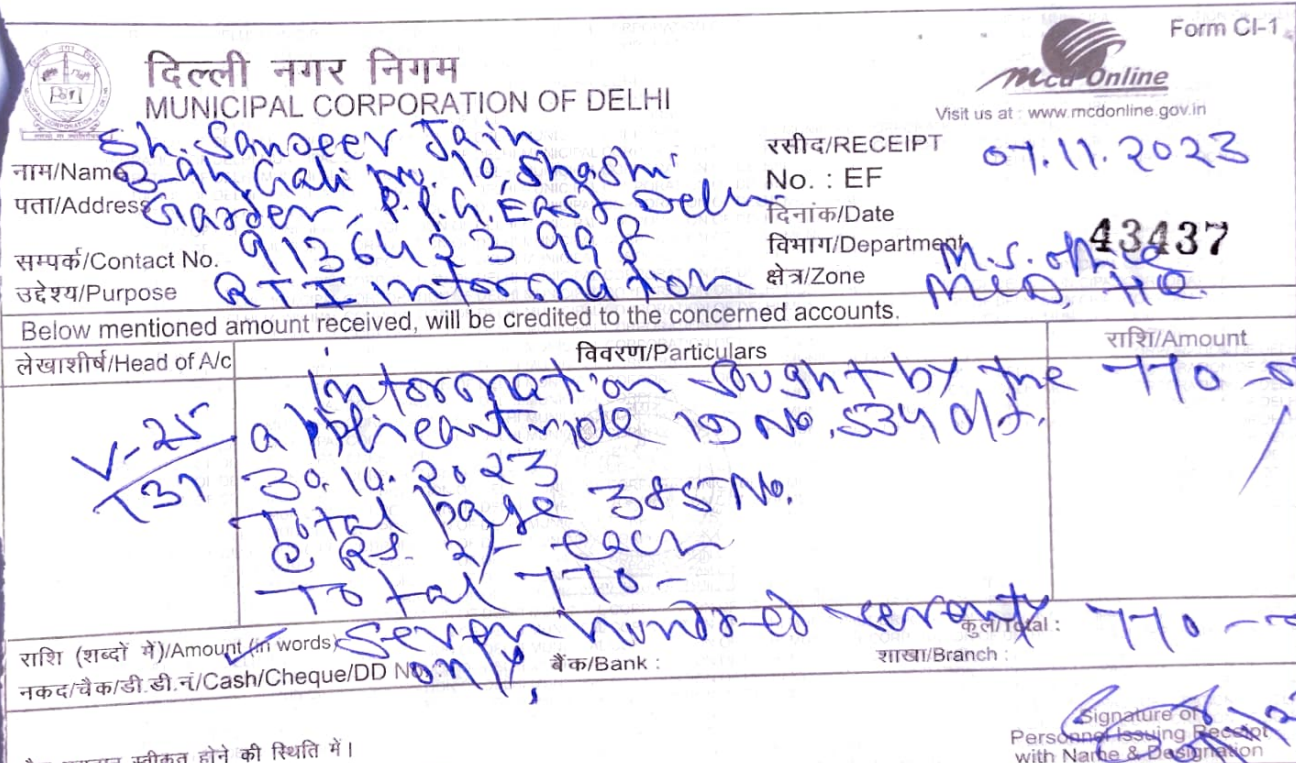 Form CI-1
दिल्ली नगर निगम
MUNICIPAL CORPORATION OF DELHI
mcd Online
Visit us at : www.mcdonline.gov.in
Sh. Sanjeev Jain
नाम/Name B-94, Gali No. 10, Shashi
पता/Address Garden, P.P.G. East Delhi
सम्पर्क/Contact No. 9136423998
उद्देश्य/Purpose RTI information
रसीद/RECEIPT 07.11.2023
No. : EF
दिनांक/Date
43437
विभाग/Department M.S. office
क्षेत्र/Zone MCD, HQ.
Below mentioned amount received, will be credited to the concerned accounts.
लेखाशीर्ष/Head of A/c विवरण/Particulars राशि/Amount
information sought by the 770
V-25 applicant vide ID No. 534 d/t.
30.10.2023
Total page 385 No.
@ Rs. 2/- each
Total 770-
राशि (शब्दों में)/Amount (in words) seven hundred seventy कुल/Total : 770
only,
नकद/चैक/डी.डी.नं/Cash/Cheque/DD No. बैंक/Bank : शाखा/Branch :
Signature of
Personnel Issuing Receipt
with Name & Designation
होने की स्थिति में।